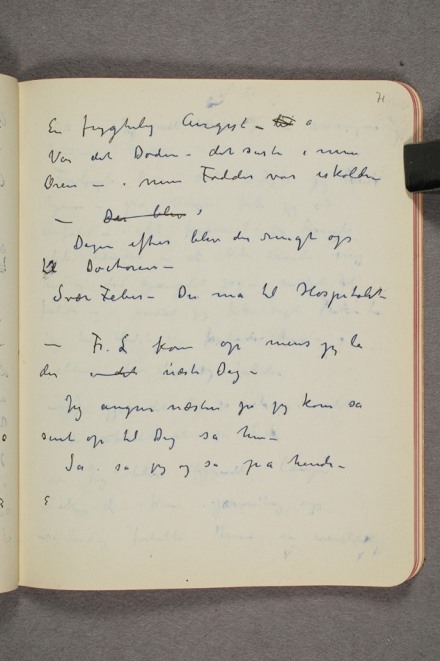 71
En frygtelig Angest –
Var det Døden – det suste i mine
Øren – . mine Fødder var iskolde
– Der blev
Dagen efter blev der ringt op
Doctoren –
Svær Feber – De må til Hospitalet
– Fr. L kom op mens jeg la
der næste Dag –
Jeg angrer næsten på jeg kom så
sent op til Dig sa hun –
Ja . sa jeg og så på hende –